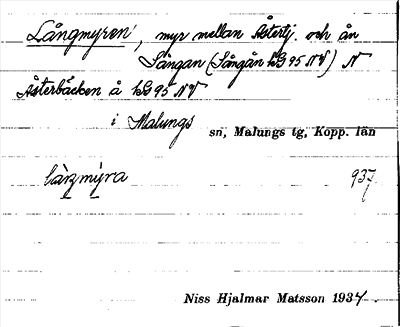 Långmyren, myr mellan Åstertj. och ån
Fångan (Fångån kG 95 NV) N
Åsterbäcken å kG 95 NV
i Malungs sn, Malungs tg, Kopp. län
937
Niss Hjalmar Matsson 1934.